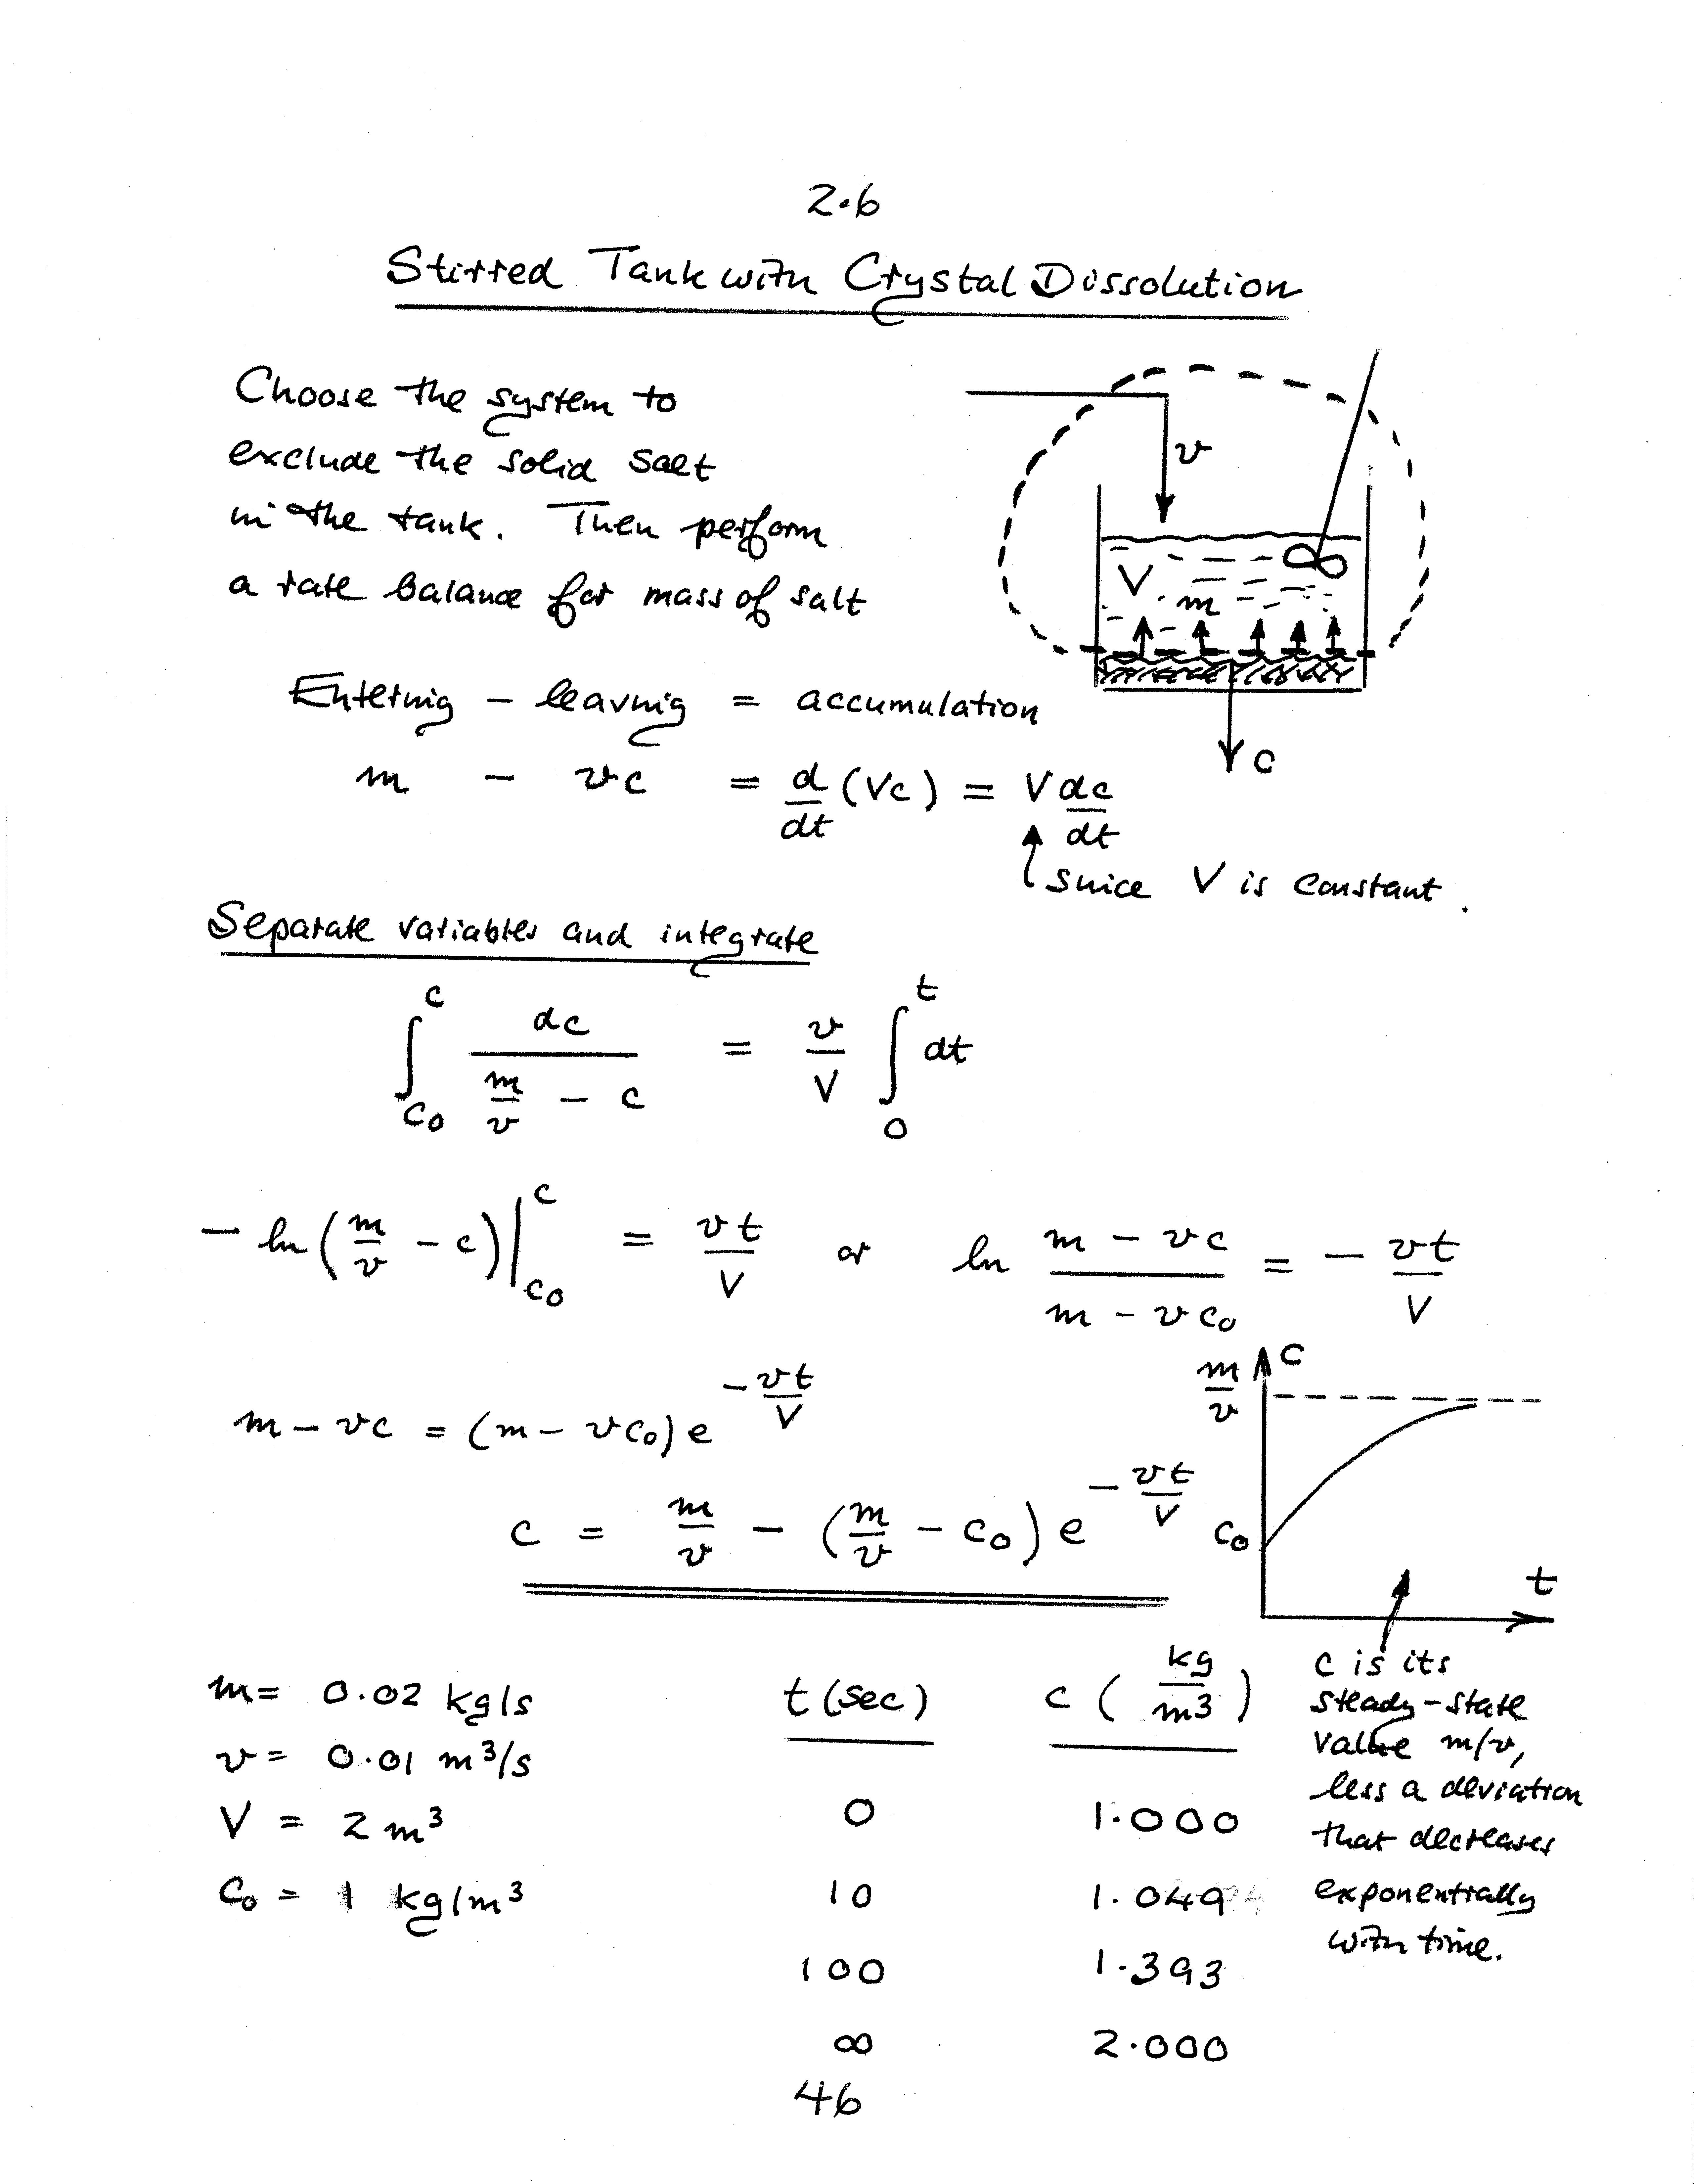 2.6
Stirred Tank with Crystal Dissolution
Choose the system to
exclude the solid salt
in the tank. Then perform
a rate balance for mass of salt
v
V
m
c
Entering - leaving = accumulation
m - vc = d/dt (Vc) = V dc/dt
since V is constant.
Separate variables and integrate
∫_{c₀}^{c} dc / (m/v - c) = v/V ∫_{0}^{t} dt
- ln (m/v - c) |_{c₀}^{c} = vt/V or ln (m - vc)/(m - vc₀) = - vt/V
m - vc = (m - vc₀) e^{-vt/V}
c = m/v - (m/v - c₀) e^{-vt/V}
m/v
c
c₀
t
m = 0.02 kg/s
v = 0.01 m³/s
V = 2 m³
c₀ = 1 kg/m³
t (sec) c (kg/m3)
0 1.000
10 1.049
100 1.393
∞ 2.000
c is its
steady-state
value m/v,
less a deviation
that decreases
exponentially
with time.
46